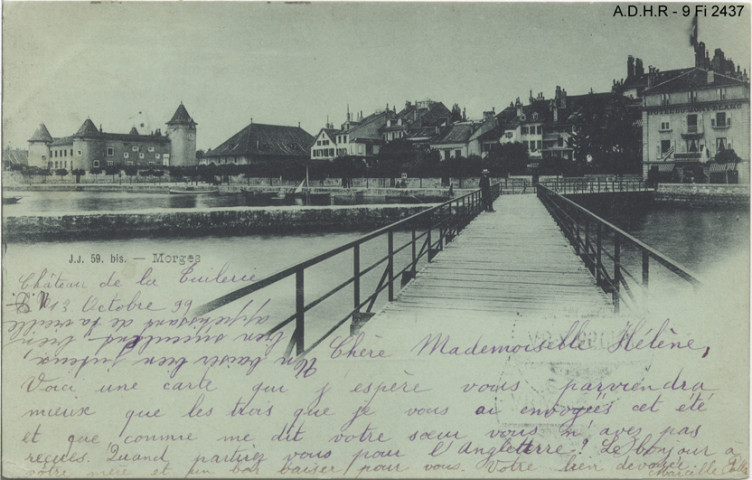 A.D.H.R - 9 Fi 2437
J.J. 59. bis. — Morges
Château de la Tuilerie
13 Octobre 99
Un baiser bien juteux,
bien succulent, bien
appétissant de la vieille
Chère Mademoiselle Hélène,
Voici une carte qui j'espère vous parviendra
mieux que les trois que je vous ai envoyées cet été
et que, comme me dit votre sœur vous n'avez pas
reçues. Quand partez vous pour l'Angleterre? Le bonjour a
votre mère et un bon baiser pour vous. Votre bien devouée